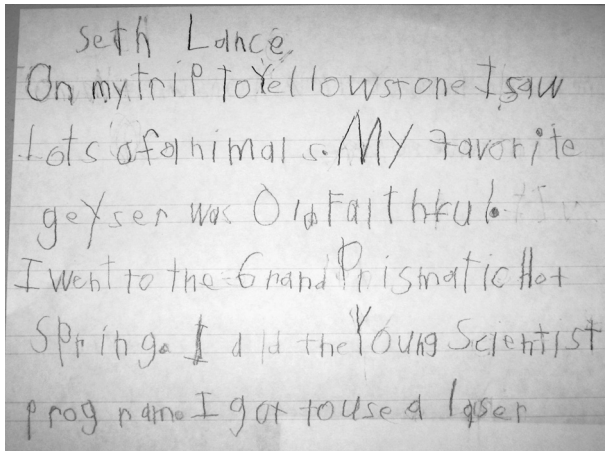 Seth Lance
On my trip to Yellowstone I saw
Lots of animals. My favorite
geyser was Old Faithful.
I went to the Grand Prismatic Hot
Spring. I did the Young Scientist
program. I got to use a laser